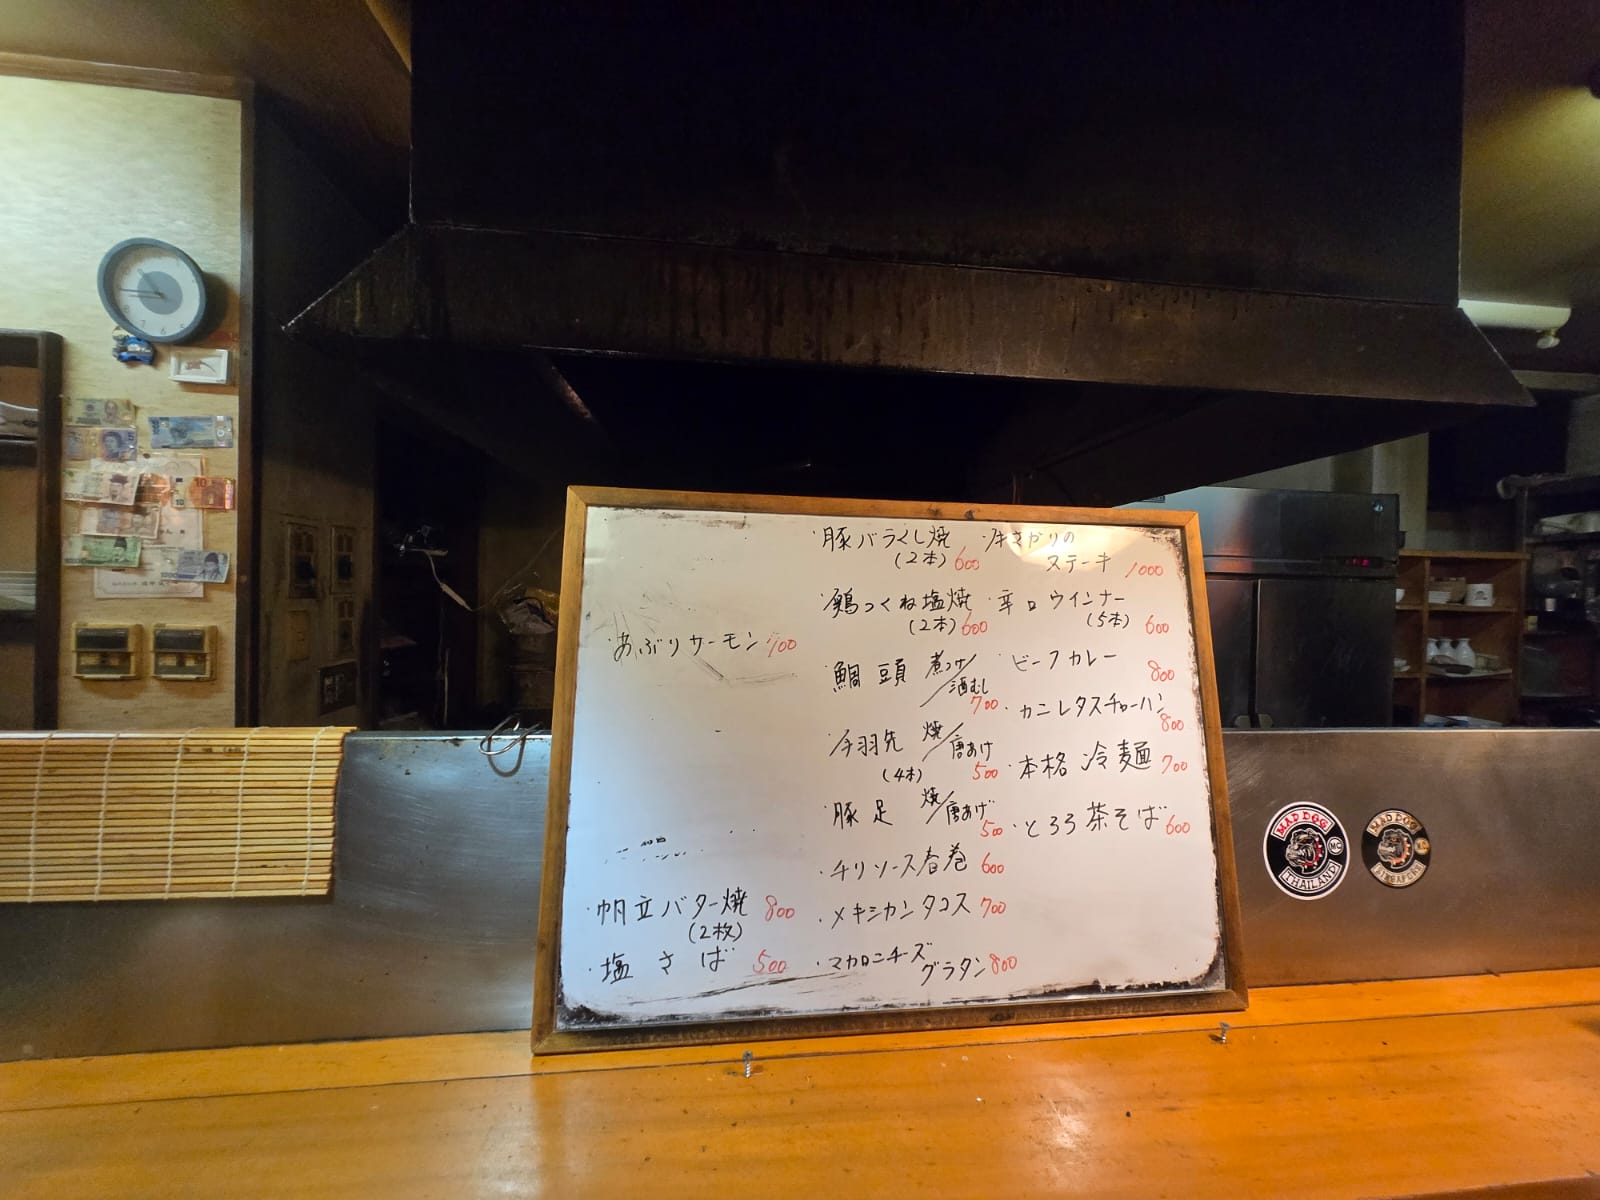 あぶりサーモン 700
・帆立バター焼 800
(2枚)
・塩さば 500
・豚バラくし焼
(2本) 600
・鶏つくね塩焼
(2本) 600
・鯛頭 煮つけ/酒むし
700
・手羽先 焼/唐あげ
(4本) 500
・豚足 焼/唐あげ
500
・チリソース春巻 600
・メキシカンタコス 700
・マカロニチーズ
グラタン 800
・牛さがりの
ステーキ 1000
・辛口ウインナー
(5本) 600
・ビーフカレー
800
・カニレタスチャーハン
800
・本格冷麺 700
・とろろ茶そば 600
MAD DOG
MC
THAILAND
MAD DOG
SINGAPORE
7
6
5
10
10
1000